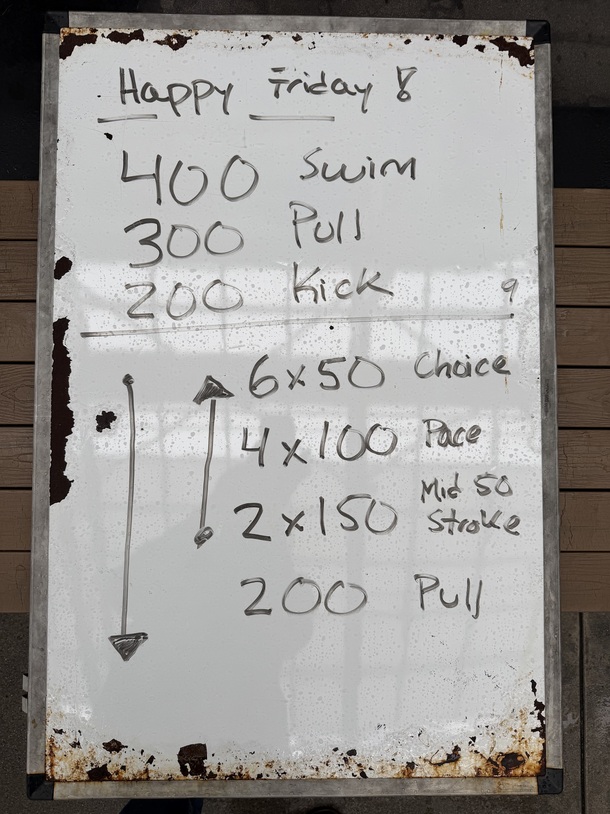 Happy Friday !
400 Swim
300 Pull
200 Kick 9
6x50 Choice
4x100 Pace
2x150 Mid 50 Stroke
200 Pull